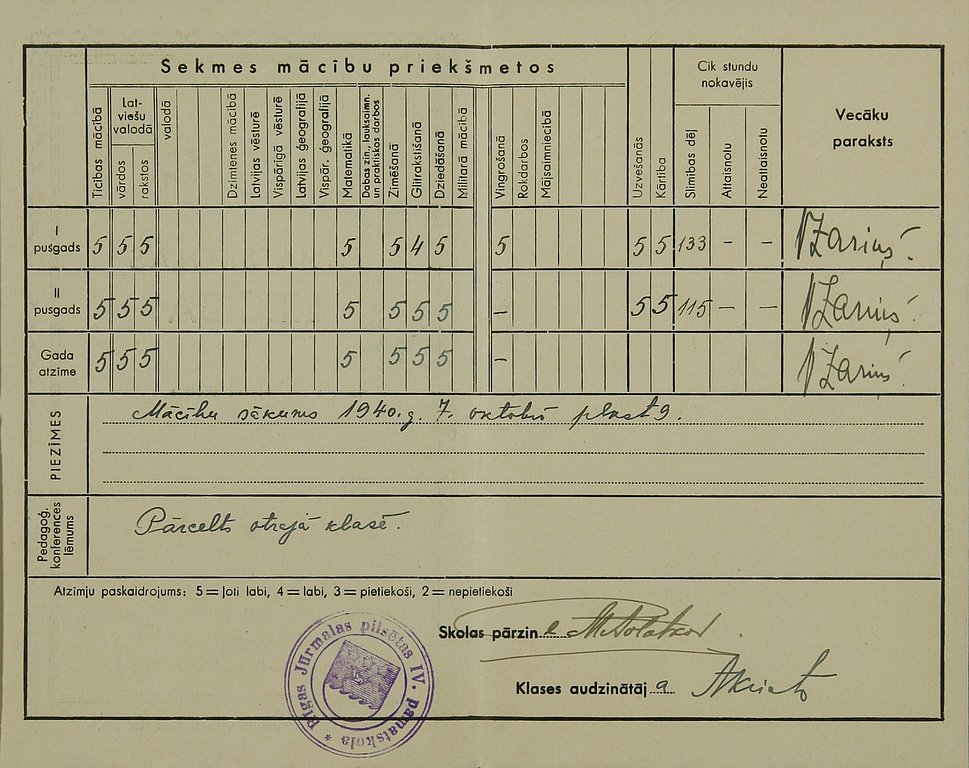 Sekmes mācību priekšmetos
Ticības mācībā
Lat-
viešu
valodā
vārdos
rakstos
valodā
Dzimtenes mācībā
Latvijas vēsturē
Vispārīgā vēsturē
Latvijas ģeografijā
Vispār. ģeografijā
Matematikā
Dabas zin., lauksaimn.
un praktiskos darbos
Zīmēšanā
Glītrakstīšanā
Dziedāšanā
Militarā mācībā
Vingrošanā
Rokdarbos
Mājsaimniecībā
Uzvešanās
Kārtība
Cik stundu
nokavējis
Slimības dēļ
Attaisnotu
Neattaisnotu
Vecāku
paraksts
I
pusgads
5 5 5 5 5 4 5 5 5 5 133 – –
Zariņš
II
pusgads
5 5 5 5 5 5 5 – 5 5 115 – –
Zariņš
Gada
atzīme
5 5 5 5 5 5 5 –
Zariņš
PIEZĪMES
Mācību sākums 1940. g. 7. oktobrī plkst 9.
Pedagoģ.
konferences
lēmums
Pārcelts otrajā klasē.
Atzīmju paskaidrojums: 5 = ļoti labi, 4 = labi, 3 = pietiekoši, 2 = nepietiekoši
Skolas pārzin e
Klases audzinātāj a
Rīgas Jūrmalas pilsētas IV. pamatskola *